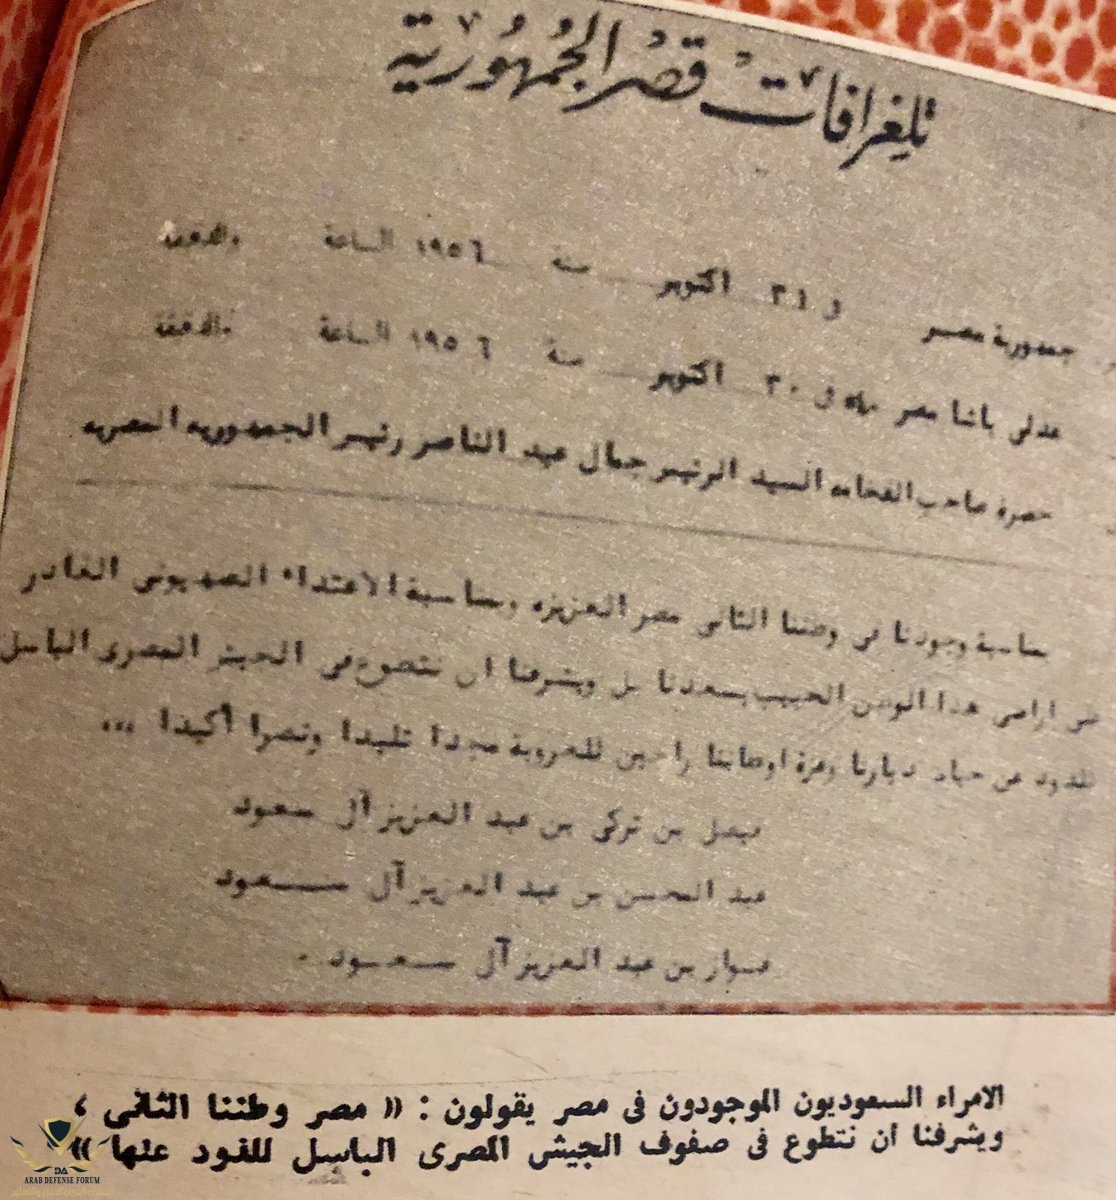 تلغرافات قصر الجمهورية
جمهورية مصر في ٣١ اكتوبر سنة ١٩٥٦ الساعة والدقيقة
عدلى باشا مصر في ٣٠ اكتوبر سنة ١٩٥٦ الساعة والدقيقة
حضرة صاحب الفخامه السيد الرئيس جمال عبد الناصر رئيس الجمهوريه المصريه
بمناسبة وجودنا فى وطننا الثانى مصر العزيزه وبمناسبة الاعتداء الصهيونى الغادر
على اراضى هذا الوطن الحبيب يسعدنا بل ويشرفنا ان نتطوع فى الجيش المصرى الباسل
للذود عن حياض ديارنا وعزة اوطاننا راجين للعروبة مجدا تليدا ونصرا أكيدا ...
فيصل بن تركى بن عبد العزيز آل سعود
عبد المحسن بن عبد العزيز آل سعود
فواز بن عبد العزيز آل سعود .
الامراء السعوديون الموجودون فى مصر يقولون : « مصر وطننا الثانى ،
ويشرفنا أن نتطوع فى صفوف الجيش المصرى الباسل للذود عنها »
ARAB DEFENSE FORUM